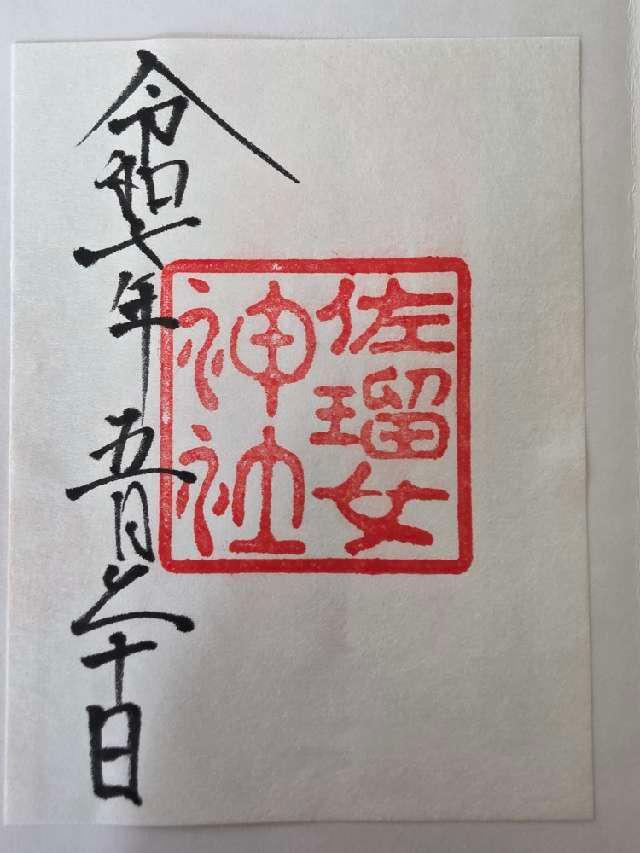 佐瑠女
神社
令和七年五月三十日